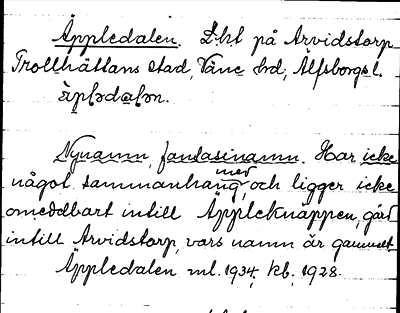 Äppledalen. L-ht på Arvidstorp
Trollhättans stad, Väne hd, Älfsborgs l.
äpledalen.
Nynamn, fantasinamn. Har icke
något sammanhang med, och ligger icke
omedelbart intill Äppleknappen, gård
intill Arvidstorp, vars namn är gammalt
Äppledalen ml. 1934, kb. 1928.